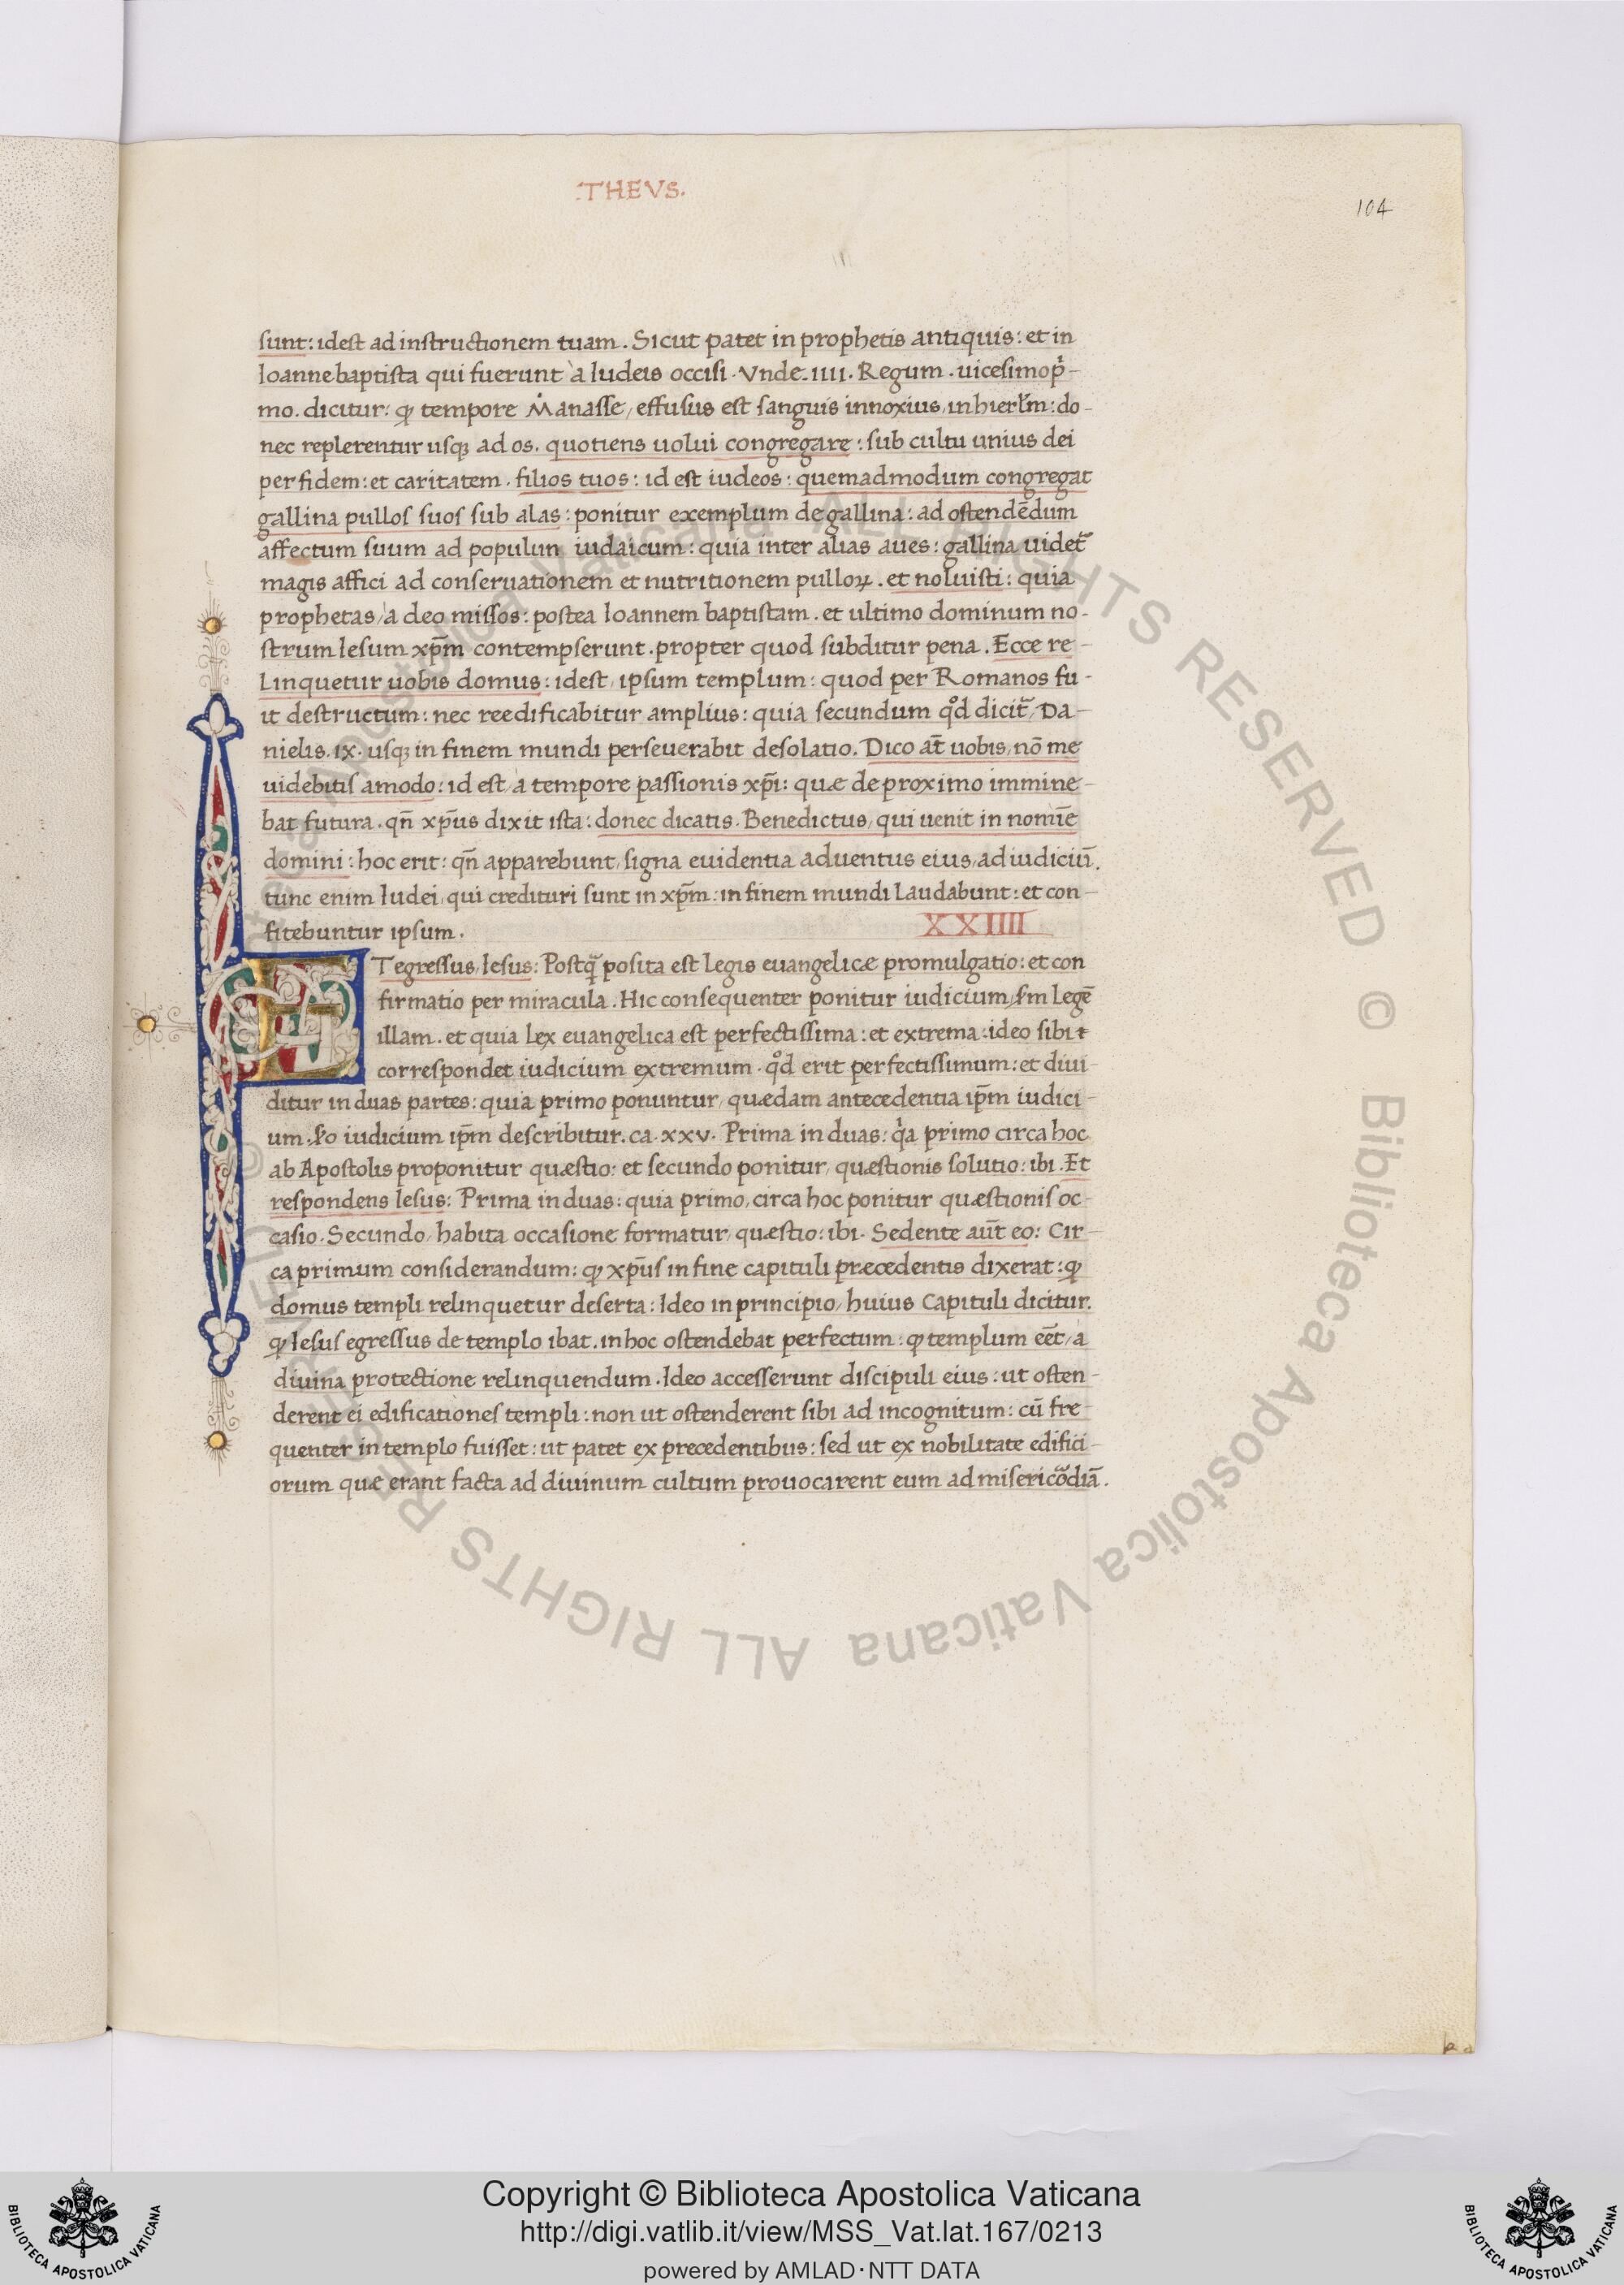 :THEVS.
104
sunt: idest ad instructionem tuam. Sicut patet in prophetis antiquis: et in
Ioanne baptista qui fuerunt à Iudeis occisi. Vnde. IIII. Regum. uicesimo p̉-
mo. dicitur: ꝙ tempore M̉anasse, effusus est sanguis innoxius, in hierl̃m: do-
nec replerentur usqꝫ ad os. quotiens uolui congregare: sub cultu unius dei
per fidem: et caritatem. filios tuos: id est iudeos: quemadmodum congregat
gallina pullos suos sub alas: ponitur exemplum de gallina: ad ostendẽdum
affectum suum ad populun iudaicum: quia inter alias aues: gallina uidet᷑
magis affici ad conseruationem et nutritionem pulloꝝ. et noluisti: quia
prophetas, à deo missos: postea Ioannem baptistam. et ultimo dominum no-
strum Iesum xp̃m contempserunt. propter quod subditur pena. Ecce re-
Linquetur uobis domus: idest, ipsum templum: quod per Romanos fu-
it destructum: nec reedificabitur amplius: quia secundum qͦd dicit᷑, Da-
nielis. IX. usqꝫ in finem mundi perseuerabit desolatio. Dico at̃ uobis, nõ me
uidebitis amodo: id est, à tempore passionis xp̃i: quæ de proximo immine-
bat futura. qñ xp̃us dixit ista: donec dicatis. Benedictus, qui uenit in nomĩe
domini: hoc erit: qñ apparebunt, signa euidentia aduentus eius, ad iudiciũ.
tunc enim Iudei, qui credituri sunt in xp̃m: in finem mundi Laudabunt: et con-
fitebuntur ipsum.
XXIIII
ETegressus, Iesus: Postq̃ posita est Legis euangelicæ promulgatio: et con
firmatio per miracula. Hic consequenter ponitur iudicium, s̃m Legẽ
illam. et quia Lex euangelica est perfectissima: et extrema: ideo sibi
correspondet iudicium extremum. qͦd erit perfectissimum: et diui-
ditur in duas partes: quia primo ponuntur, quædam antecedentia ip̃m iudici-
um. iudicium ip̃m describitur. ca. XXV. Prima in duas: q̉a primo circa hoc
ab Apostolis proponitur quæstio: et secundo ponitur, quæstionis solutio: ibi. Et
respondens Iesus: Prima in duas: quia primo, circa hoc ponitur quæstionis oc-
casio. Secundo, habita occasione formatur, quæstio: ibi. Sedente aũt eo: Cir-
ca primum considerandum: ꝙ xp̃us in fine capituli præcedentis dixerat: ꝙ
domus templi relinquetur deserta: Ideo in principio, huius Capituli dicitur.
ꝙ Iesus egressus de templo ibat. in hoc ostendebat perfectum: ꝙ templum eẽt, a
diuina protectione relinquendum. Ideo accesserunt discipuli eius: ut osten-
derent ei edificationes templi: non ut ostenderent sibi ad incognitum: cũ fre-
quenter in templo fuisset: ut patet ex precedentibus: sed ut ex nobilitate edifici-
orum quæ erant facta ad diuinum cultum prouocarent eum ad misericõdiã.
© Biblioteca Apostolica Vaticana ALL RIGHTS RESERVED
Copyright © Biblioteca Apostolica Vaticana
http://digi.vatlib.it/view/MSS_Vat.lat.167/0213
powered by AMLAD·NTT DATA
BIBLIOTECA APOSTOLICA VATICANA
BIBLIOTECA APOSTOLICA VATICANA